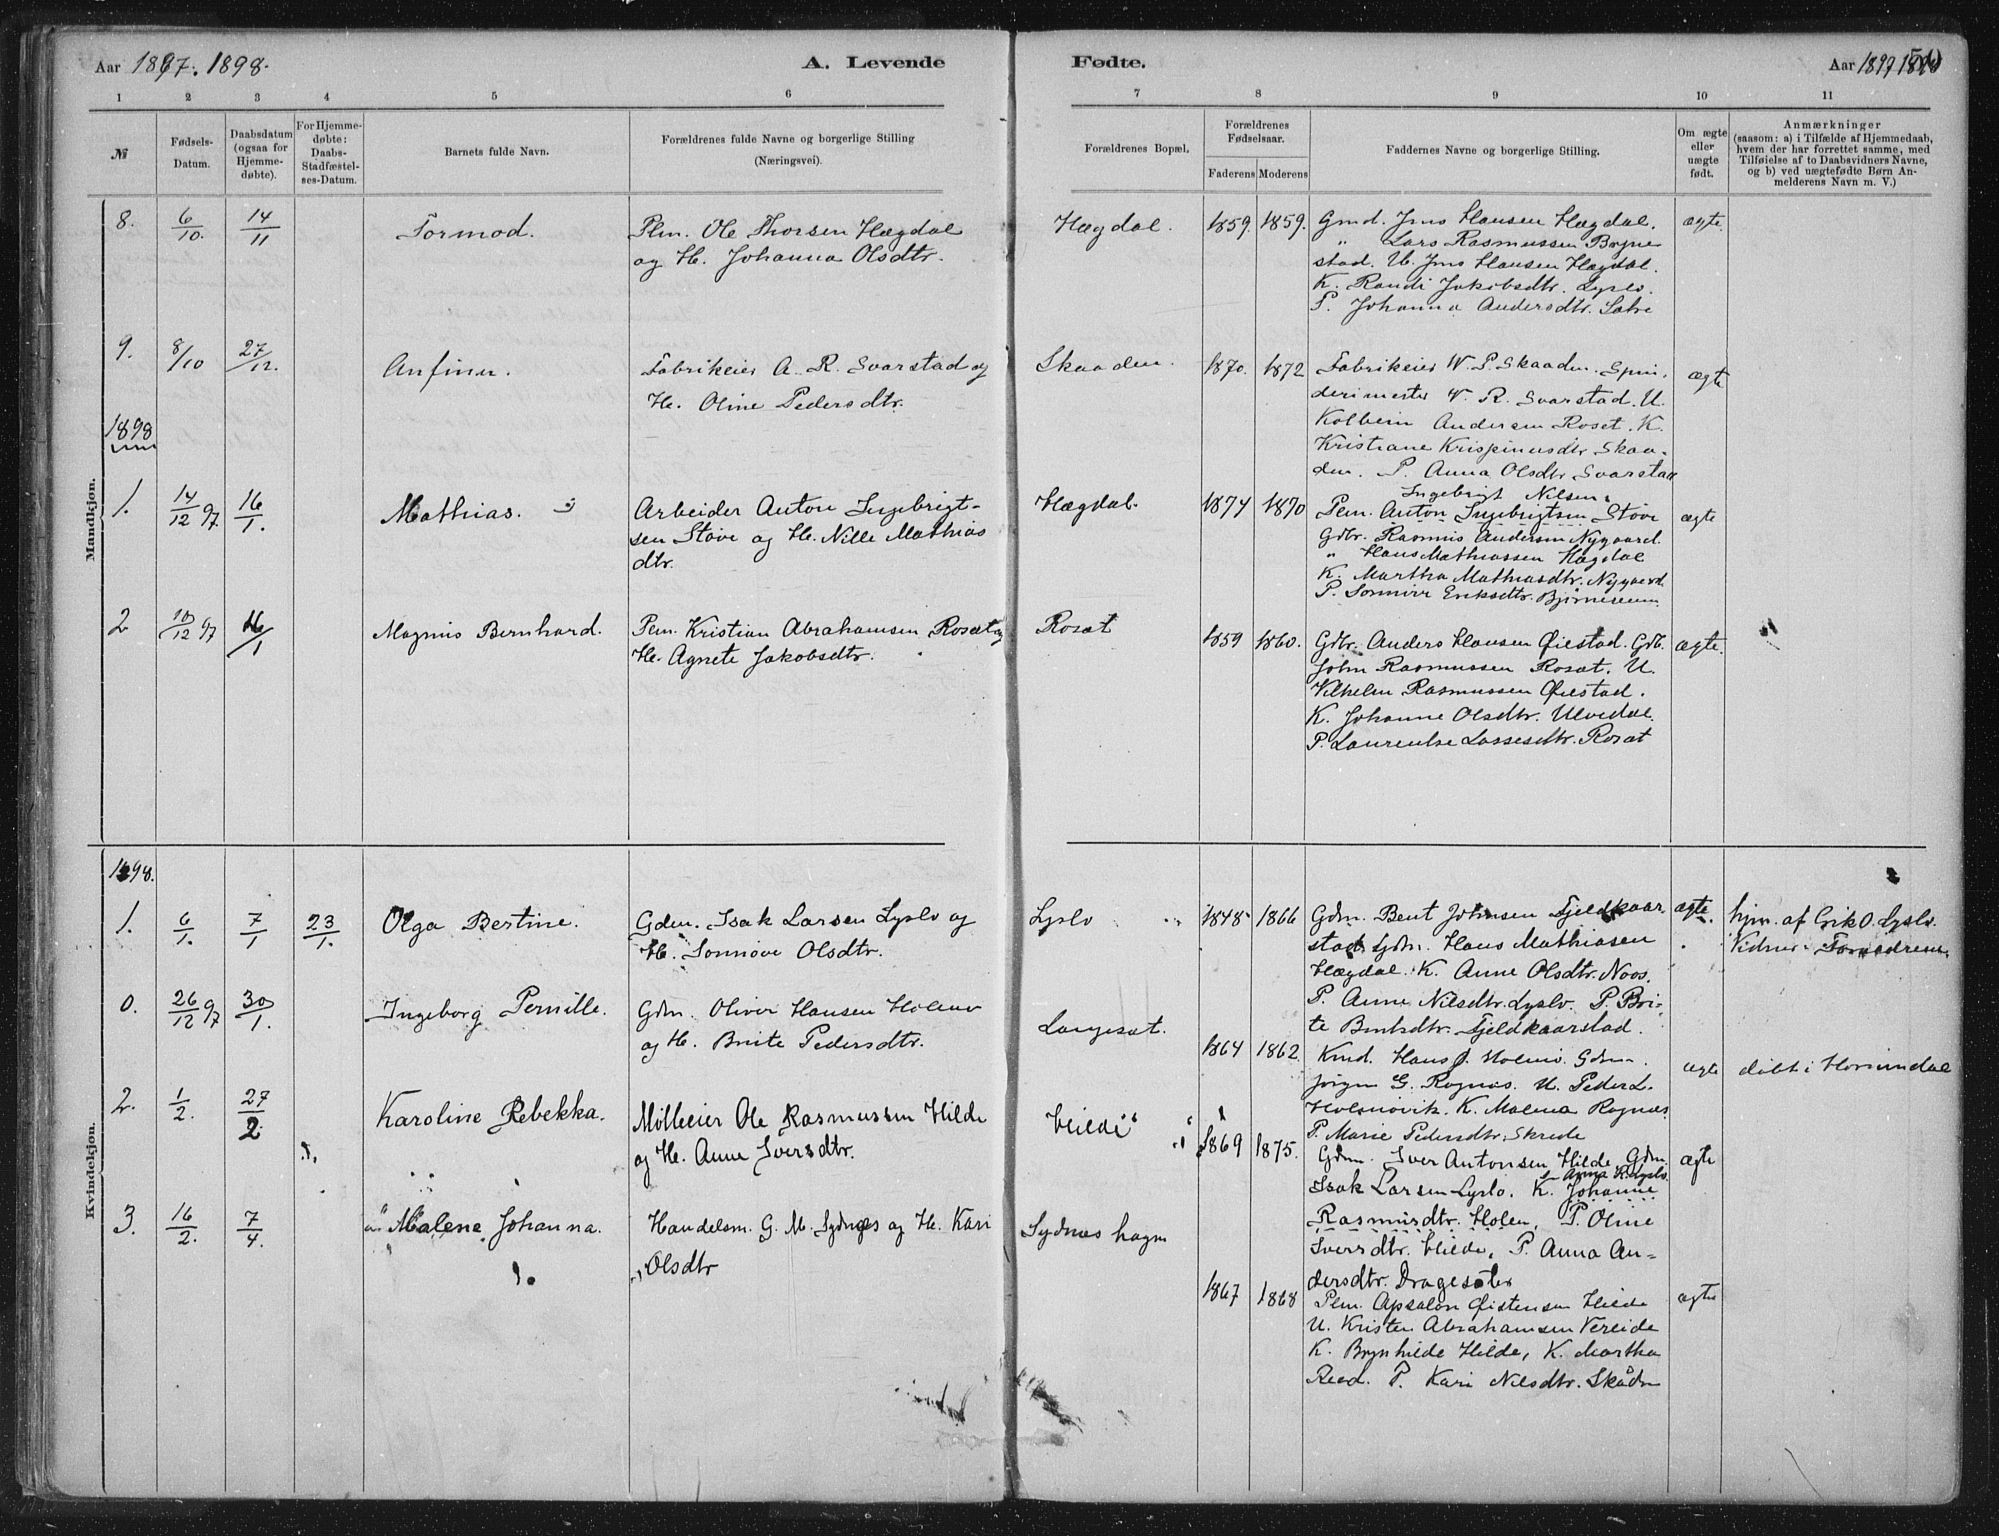 Aar 1897. 1898.
A. Levende
Fødte.
Aar 1897 1898
1 2 3 4 5 6 7 8 9 10 11
№
Fødsels-
Datum.
Daabsdatum
(ogsaa for
Hjemme-
døbte).
For Hjemme-
døbte:
Daabs-
Stadfæstel-
ses-Datum.
Barnets fulde Navn.
Forældrenes fulde Navne og borgerlige Stilling
(Næringsvei).
Forældrenes Bopæl.
Forældrenes
Fødselsaar.
Faderens Moderens
Faddernes Navne og borgerlige Stilling.
Om ægte
eller
uægte
født.
Anmærkninger
(saasom: a) i Tilfælde af Hjemmedaab,
hvem der har forrettet samme, med
Tilføielse af to Daabsvidners Navne,
og b) ved uægtefødte Børn An-
melderens Navn m. V.)
Mandkjøn.
8. 6/10. 14/11 Tormod.
Plm. Ole Thorsen Hægdal
og H. Johanna Olsdtr.
Hægdal. 1859. 1859.
Gmd. Jens Hansen Hægdal.
" Lars Rasmussen Bryne
stad. U. Jens Hansen Hægdal.
K. Randi Jakobsdtr. Lyslo.
P. Johanna Andersdtr. Sætre
ægte.
9. 8/10 27/12. Anfinn.
Fabrikeier A. R. Svarstad og
H. Oline Pedersdtr.
Skaaden. 1870. 1872
Fabrikeier W. P. Skaaden. Spin-
derimester V. R. Svarstad. U.
Kolbein Andersen Roset. K.
Kristiane Krispinusdtr Skaa-
den. P. Anna Olsdtr Svarstad
ægte
1898
1. 14/12 97 16/1. Mathias.
Arbeider Anton Ingebrigt-
sen Støve og H. Nille Mathias
dtr.
Hægdal. 1874 1870
Ingebrigt Nilsen
Plm. Anton Ingebrigtsen Støve
Gdbr. Rasmus Andersen Nygaard.
" Hans Mathiassen Hægdal
K. Martha Mathiasdtr. Nygaard.
P. Sønnive Eriksdtr.
ægte
2 10/12 97 16/1 Magnus Bernhard.
Plm. Kristian Abrahamsen Rosæt og
H. Agnete Jakobsdtr.
Rosæt 1859 1860.
Gdbr. Anders Hansen Øiestad. Gdb.
John Rasmussen Rosæt. U.
Vilhelm Rasmussen Øiestad.
K. Johanne Olsdtr. Ulvedal.
P. Laurentse Lassesdtr. Rosæt
ægte.
Kvindekjøn.
1898.
1. 6/1. 7/1 23/1. Olga Bertine.
Gdm. Isak Larsen Lyslo og
H. Sønnøve Olsdtr.
Lyslo 1848 1866
Gdm. Bent Johnsen Fjeldkaar-
stad. Gdm. Hans Mathiasen
Hægdal. K. Anne Olsdtr. Noos.
P. Anne Nilsdtr. Lyslo. P. Bri-
te Bentsdtr. Fjeldkaarstad.
ægte.
hjm. af Erik O. Lyslo.
Vidner: Forældrene
0. 26/12 97 30/1. Ingeborg Pernille.
Gdm. Oliver Hansen Holmø
og H. Brite Pedersdtr.
Langesæt. 1864 1862
Kmd. Hans J. Holmø. Gdm.
Jørgen G. Rognæs. U. Peder L.
Holsnøvik. K. Malena Rognæs
P. Marie Pedersdtr. Skrede
ægte
døbt i Hornindal
2. 1/2. 27/2 Karoline Rebekka.
Mølleeier Ole Rasmussen Hilde
og H. Anne Iversdtr.
Hilde 1869 1875.
Gdm. Iver Antonsen Hilde Gdm.
Isak Larsen Lyslo. K. Johanne
Anna K. Lyslo
Rasmusdtr. Holen, P. Oline
Iversdtr. Hilde, P. Anna An-
dersdtr. Dragesæter
ægte
3. 16/2. 7/4. Malene Johanna.
Handelsm. G. M. Sydnæs og H. Kari
Olsdtr
Sydnæs hagen 1867 1868
Plm. Apsalon Øistensen Hilde
U. Kristen Abrahamsen Vereide
K. Brynhilde Hilde, K. Martha
Reed. P. Kari Nilsdtr. Skåden
ægte